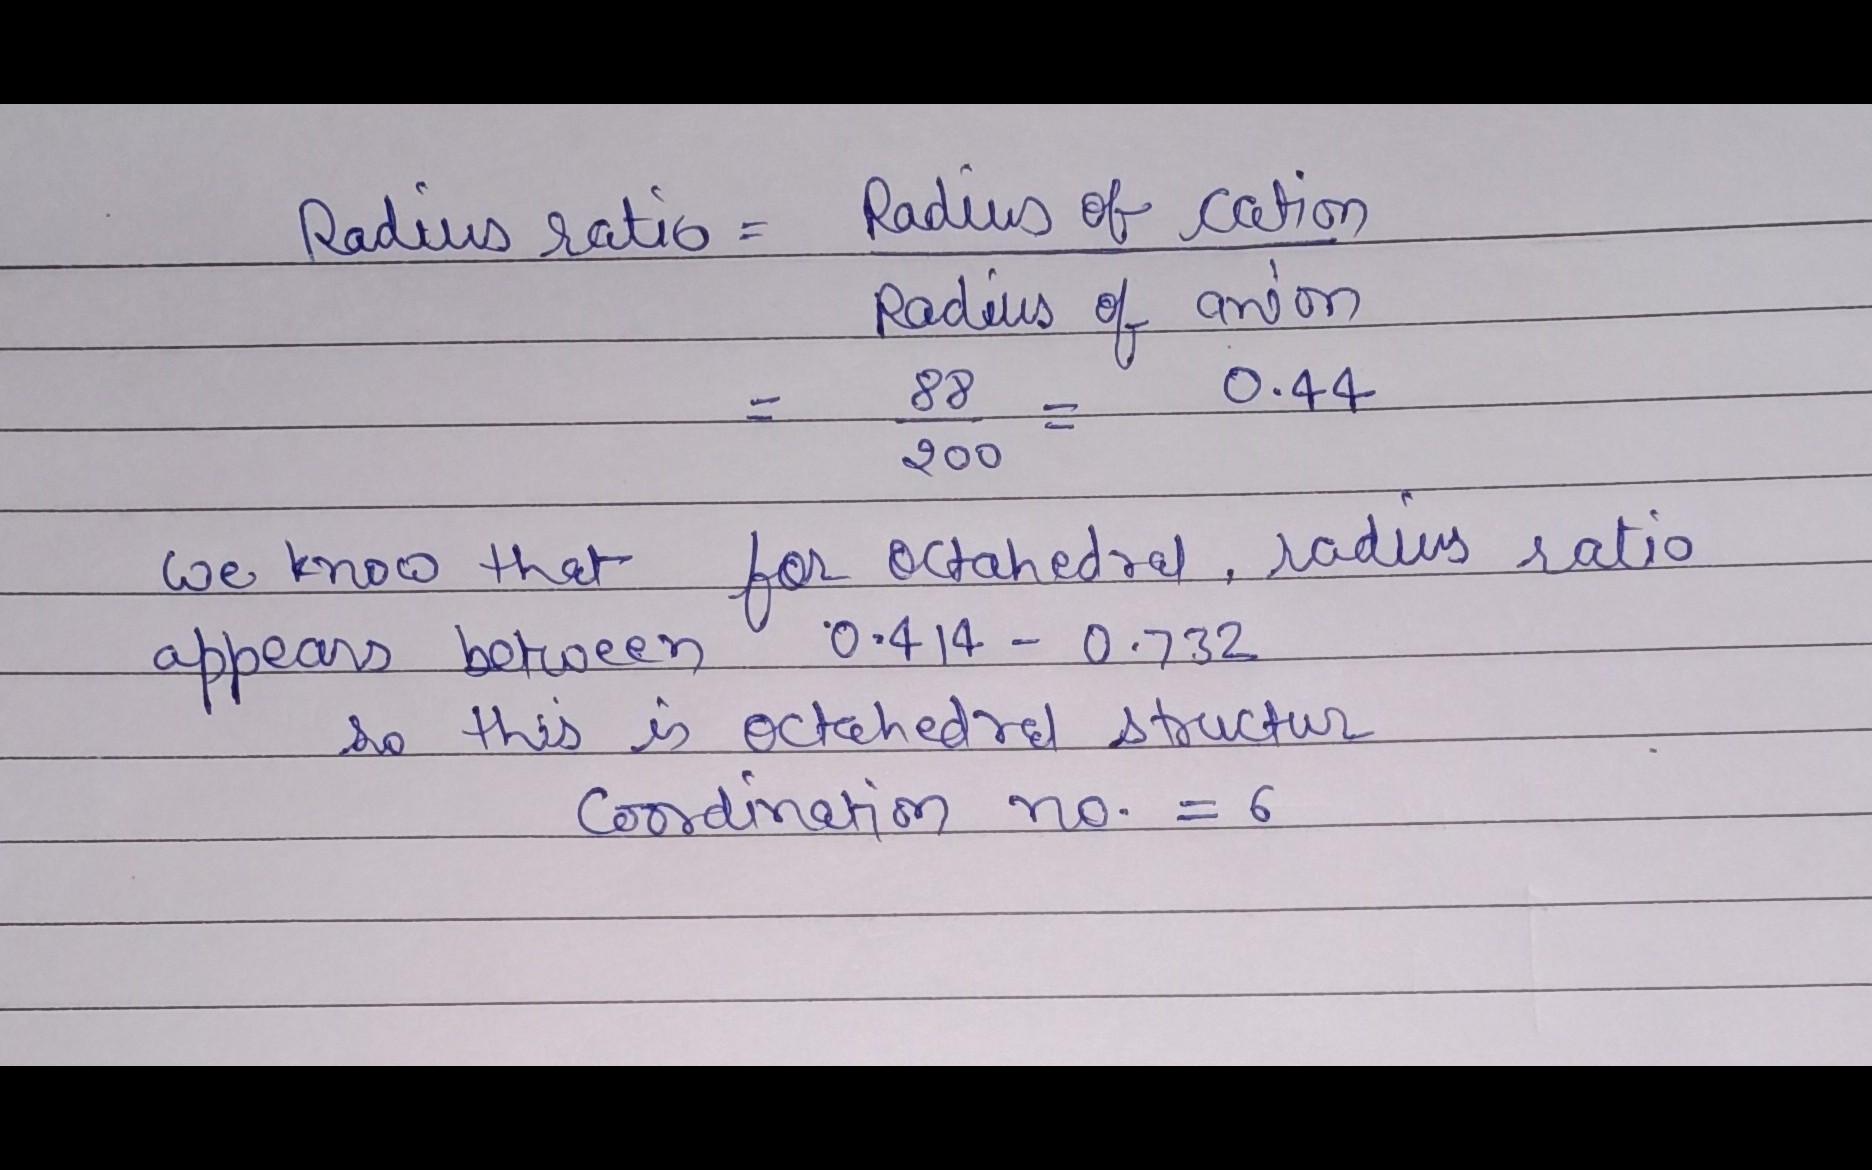 Radius ratio = Radius of cation
Radius of anion
= 88 = 0.44
200
we know that for octahedral, radius ratio
appears between 0.414 - 0.732
so this is octahedral structur
Coordination no. = 6